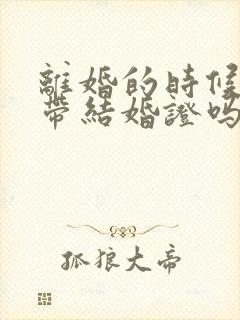 離婚的時候
帶結婚證嗎
孤狼大帝